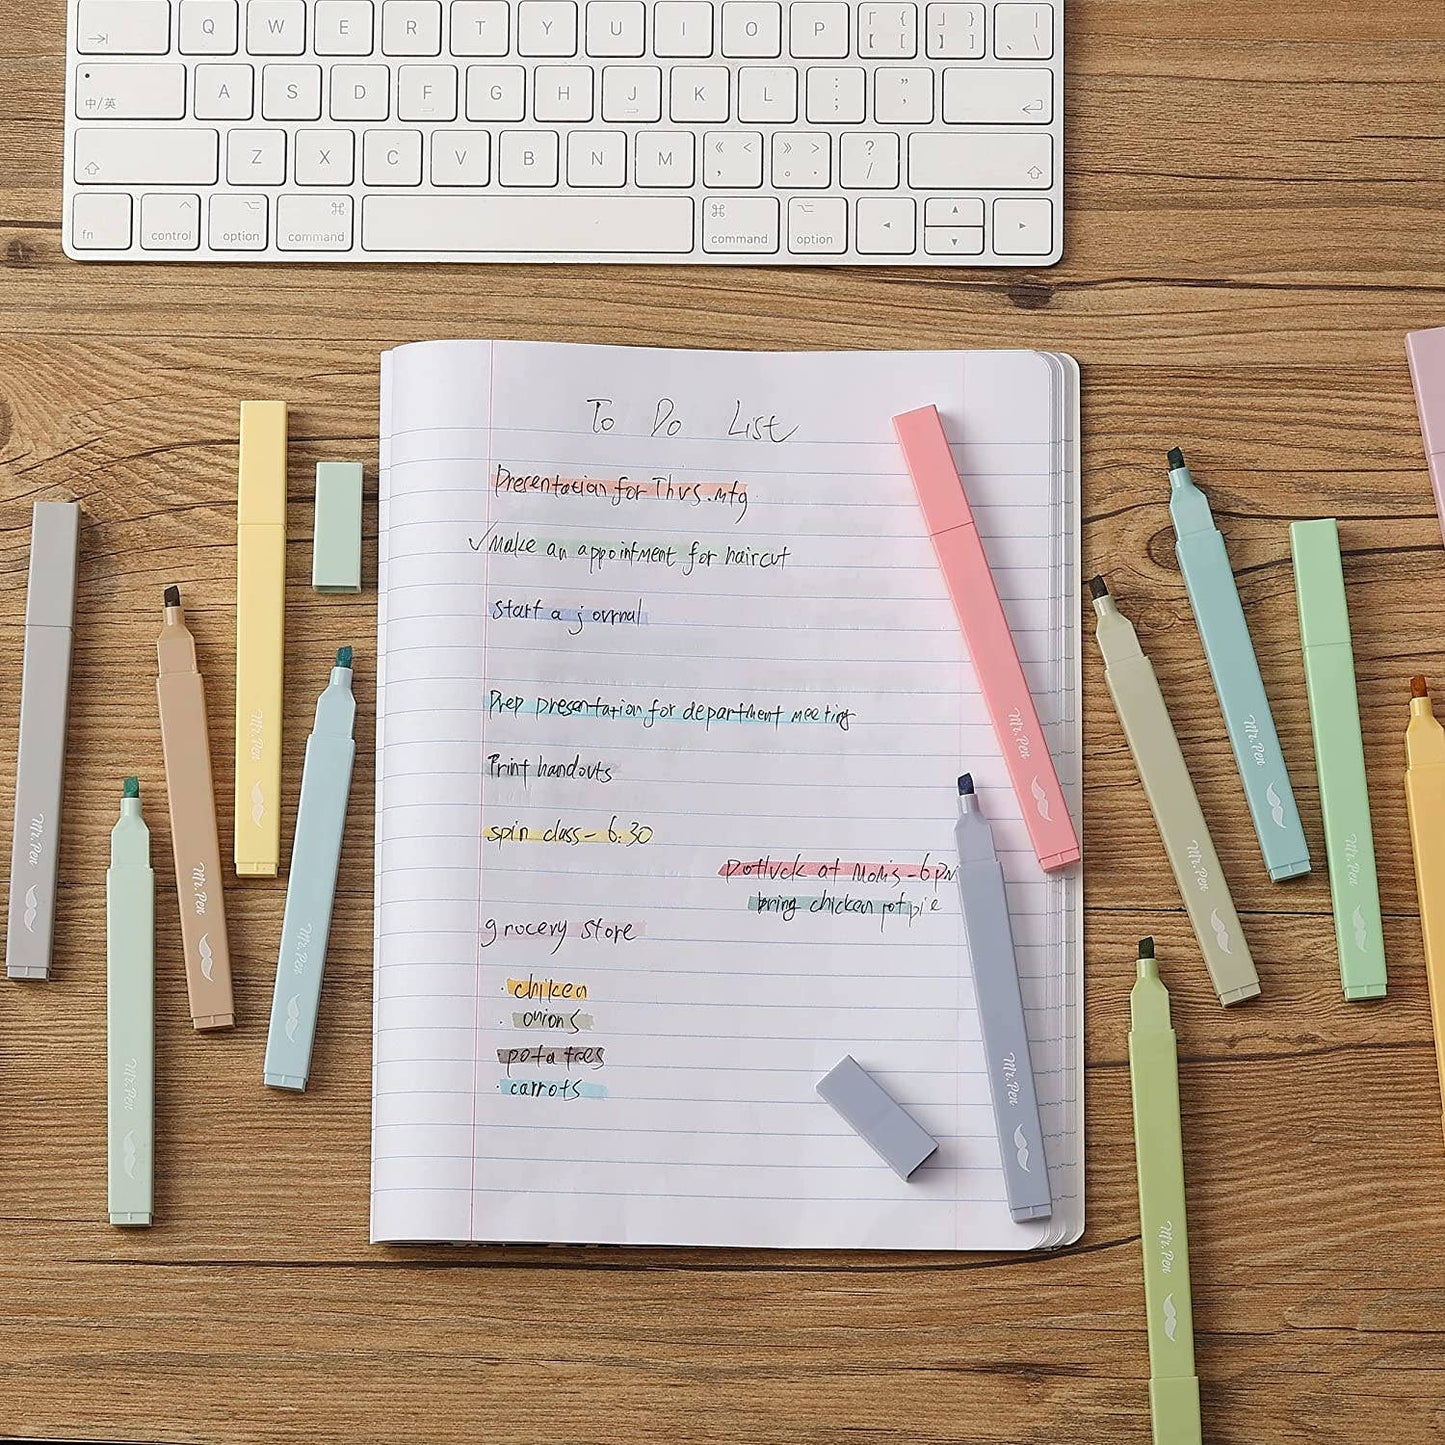 Q W E R T Y U I O P 「 { 【 [ 」 } 】 ] | 、 \
中/英 A S D F G H J K L : ; " '
Z X C V B N M 《 < , 》 > 。 . ? /
fn control option command command option
To Do List
Presentation for Thurs.mtg.
✓Make an appointment for haircut
start a journal
Prep presentation for department meeting
Print handouts
spin class - 6:30
potluck at Mom's - 6pm
bring chicken pot pie
grocery store
· chiken
· onions
· potatoes
· carrots
Mr. Pen
Mr. Pen
Mr. Pen
Mr. Pen
Mr. Pen
Mr. Pen
Mr. Pen
Mr. Pen
Mr. Pen
Mr. Pen
Mr. Pen